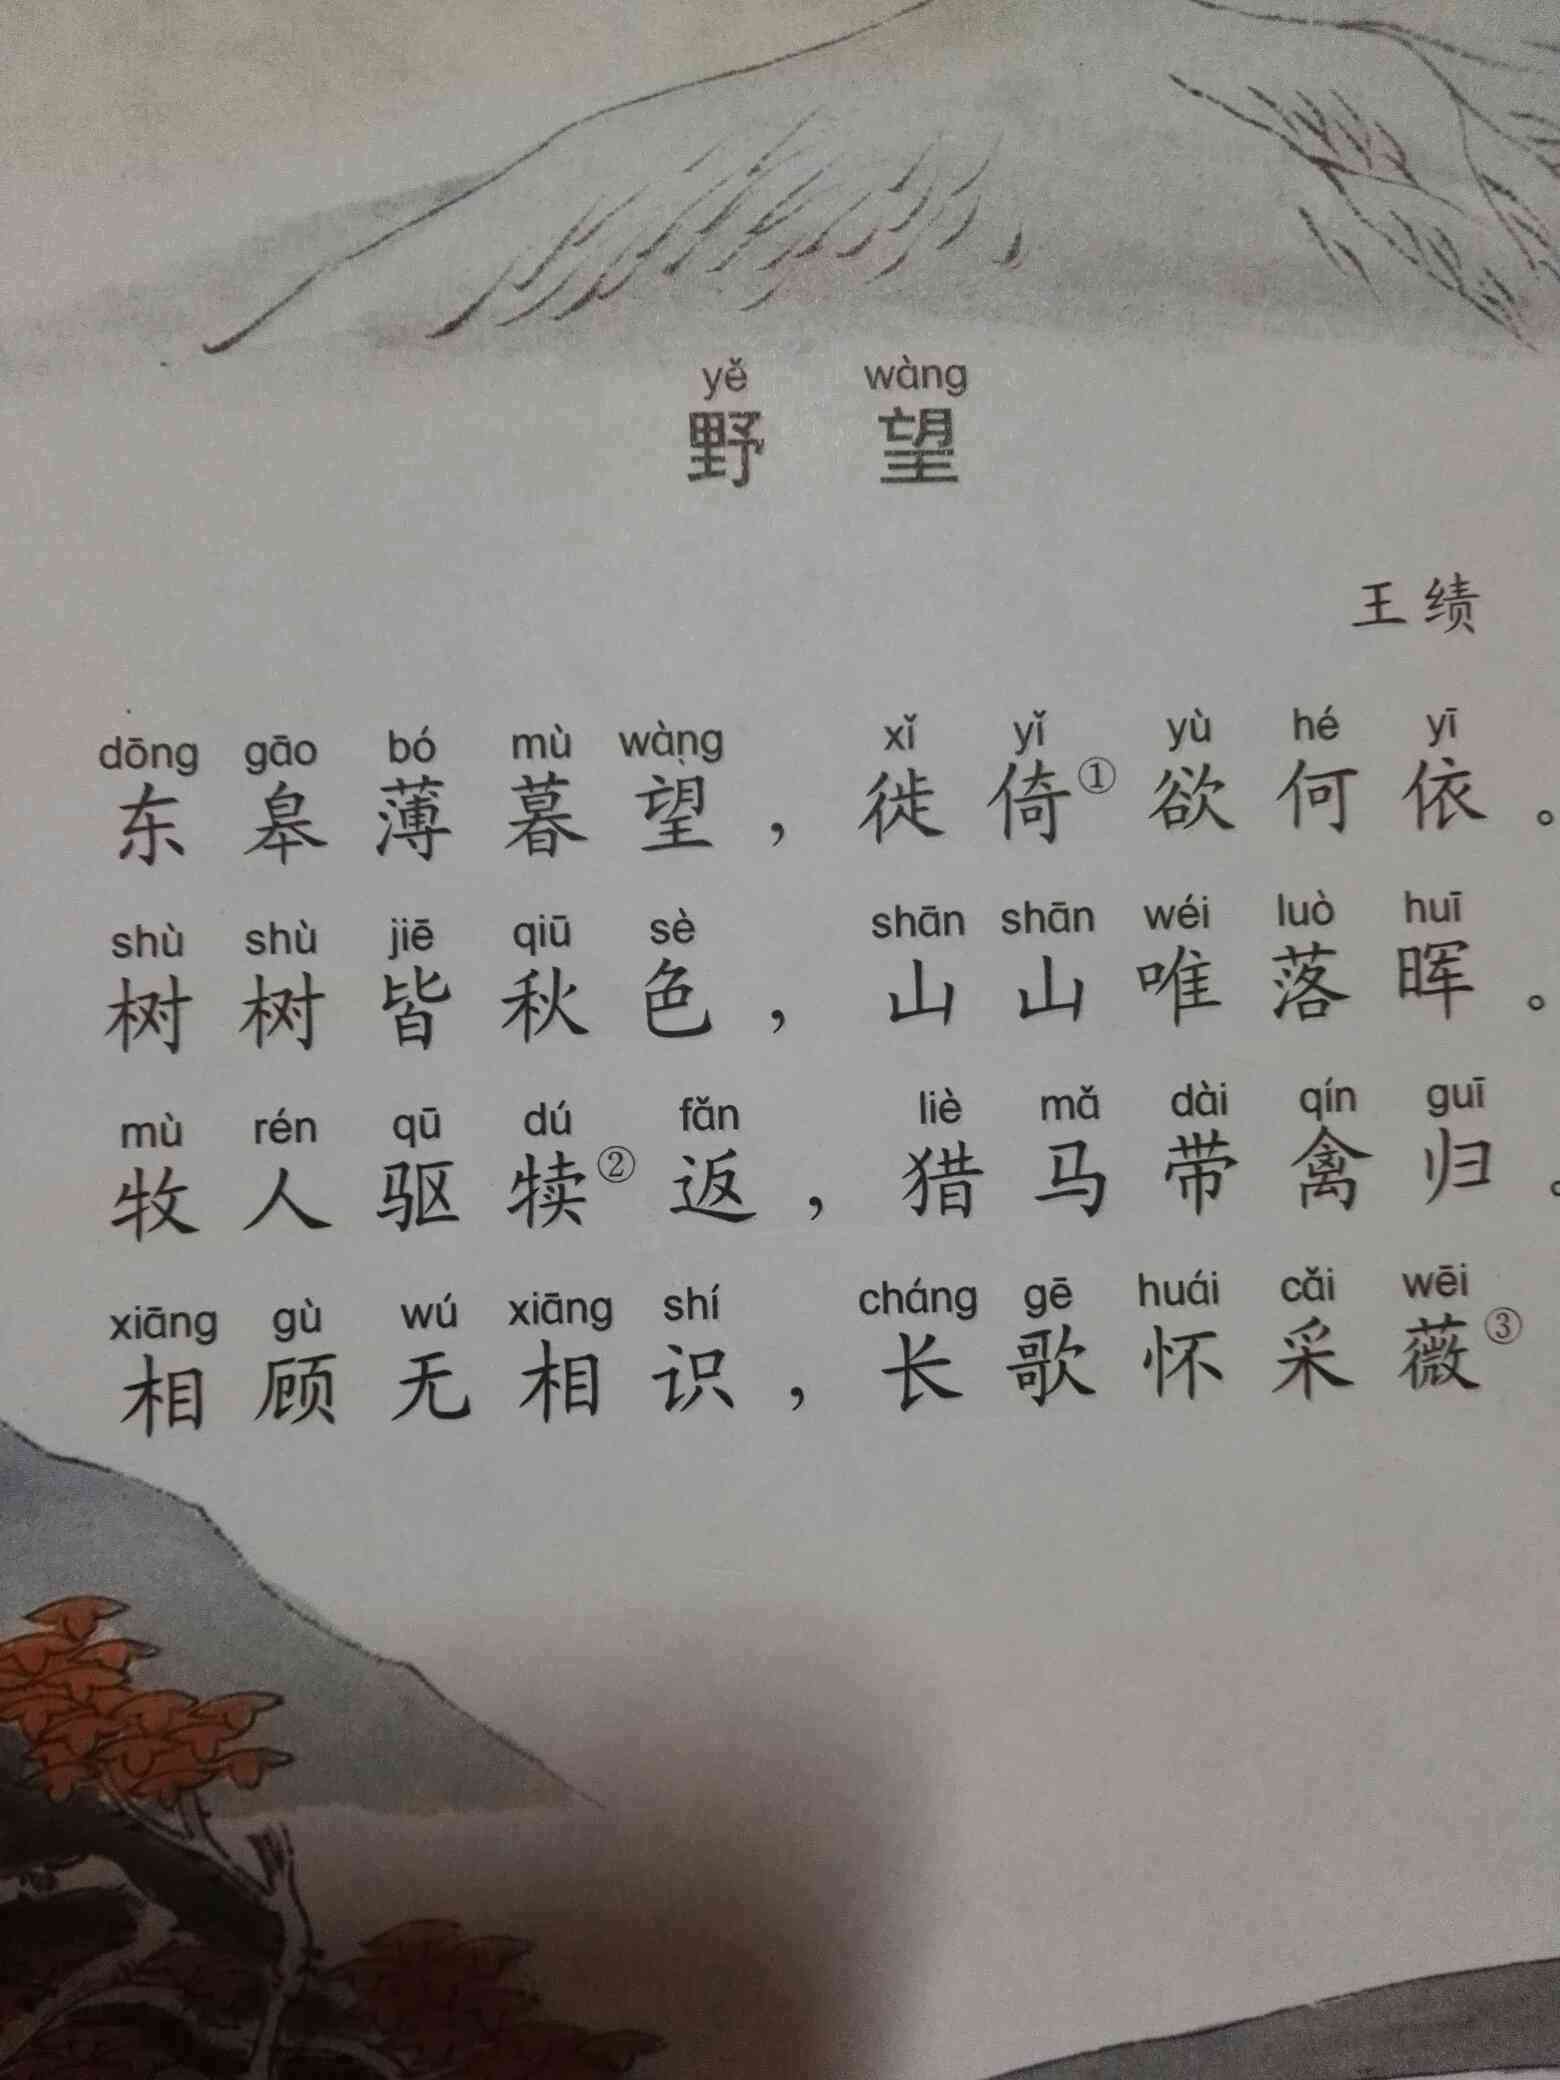 yě wàng
野 望
王绩
dōng gāo bó mù wàng xǐ yǐ yù hé yī
东皋薄暮望，徙倚①欲何依。
shù shù jiē qiū sè shān shān wéi luò huī
树树皆秋色，山山唯落晖。
mù rén qū dú fǎn liè mǎ dài qín guī
牧人驱犊②返，猎马带禽归。
xiāng gù wú xiāng shí cháng gē huái cǎi wēi
相顾无相识，长歌怀采薇③